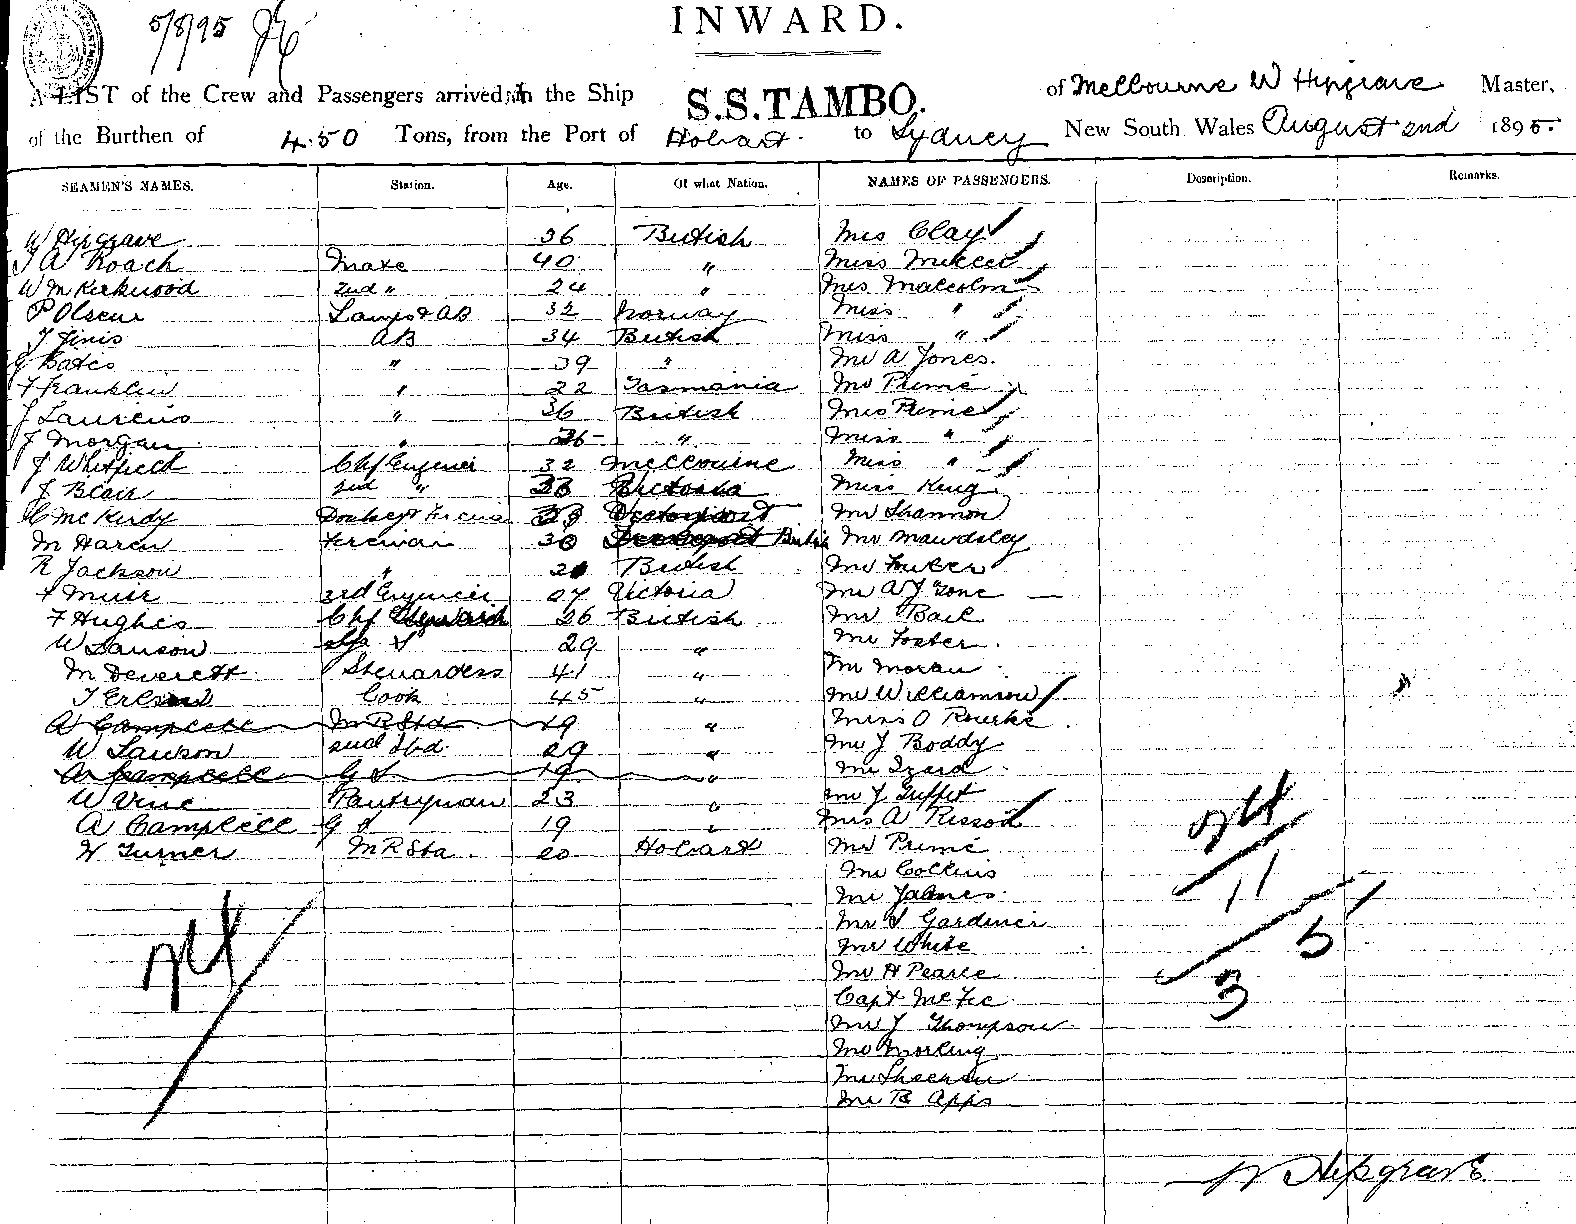 5/8/95
INWARD.
A LIST of the Crew and Passengers arrived in the Ship S.S. TAMBO. of Melbourne W Hipgrave Master,
of the Burthen of 450 Tons, from the Port of Hobart to Sydney New South Wales August 2nd 1895.
SEAMEN'S NAMES. Station. Age. Of what Nation. NAMES OF PASSENGERS. Description. Remarks.
W Hipgrave 36 British Mrs Clay
J A Roach Mate 40 " Miss
W M Kirkwood 2nd " 24 " Mrs Malcolm
P Olsen Lamps & AB 32 Norway Miss "
AB 34 British Miss "
G Bates " 39 " Mr A Jones.
F Franklin " 22 Tasmania Mr Prime
J Laurens " 36 British Mrs Prime
J Morgan " " Miss "
J Whitfield Chf Engineer 32 Melbourne Miss "
J Blair 2nd " Victoria Miss King
McKirdy Mr Shannon
M Haren Fireman 30 British Mr Mawdsley
R Jackson " British Mr
Muir 3rd Engineer 27 Victoria Mr A J
F Hughes Chf Steward 26 British Mr Bail
W Lawson 29 " Mr Foster.
M Deverett Stewardess 41 " Mr Moran
Cook 45 " Mr Williamson
A Campbell M R Std 19 " Miss O Rourke
W Lawson 2nd Std. 29 " Mr J Boddy
A Campbell G S 19 " Mr Izard
W Vine Pantryman 23 " Mr J
A Campbell G S 19 " Mrs A Risson
W Turner M R Std 20 Hobart Mr Prime
Mr Collins
Mr James
Mr S Gardiner
Mr White
Mr H Pearce
Capt McFie
Mr J Thompson
Mr Morling
Mr
Mr B Apps
11
5
3
W Hipgrave